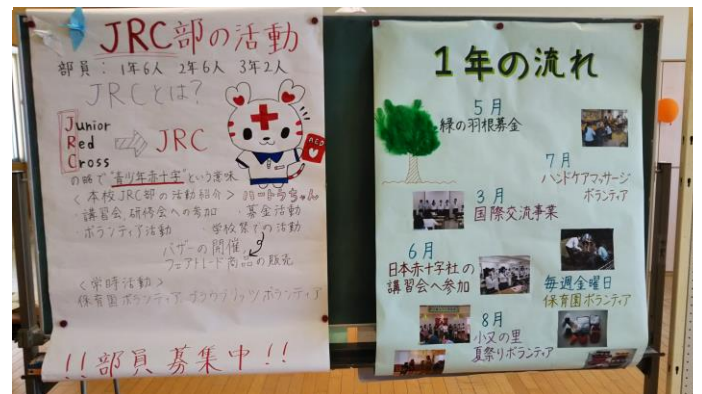 JRC部の活動
部員： 1年6人 2年6人 3年2人
JRCとは？
Junior
Red
Cross
JRC
の略で"青少年赤十字"という意味
ハートラちゃん
＜本校JRC部の活動紹介＞
・講習会、研修会への参加 ・募金活動
・ボランティア活動 ・学校祭での活動
バザーの開催
フェアトレード商品の販売
＜常時活動＞
保育園ボランティア グラウプリッツボランティア
!!部員募集中!!
1年の流れ
5月
緑の羽根募金
7月
ハンドケアマッサージ
ボランティア
3月
国際交流事業
6月
日本赤十字社の
講習会へ参加
毎週金曜日
保育園ボランティア
8月
小又の里
夏祭りボランティア